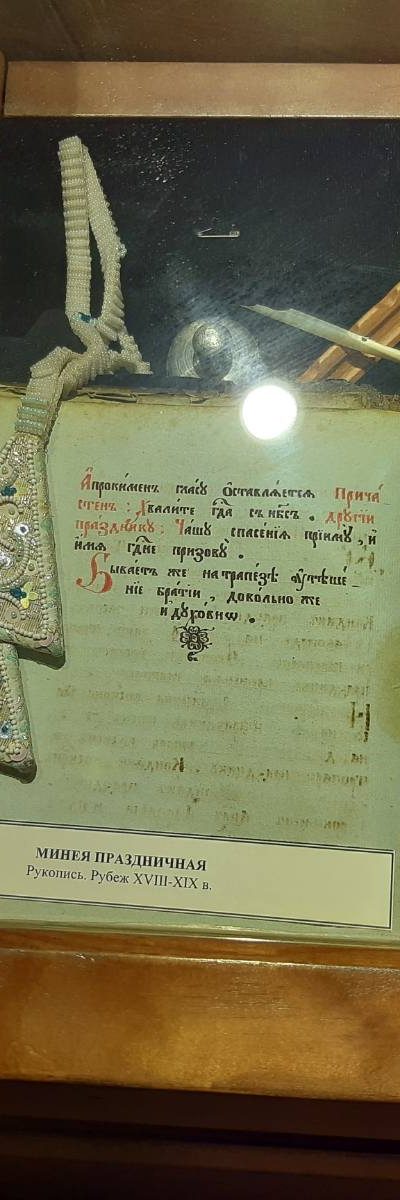 А҆прокименъ гласꙋ ѻ҆ставлѧетсѧ Прича
стенъ : Хвали́те гд҃а съ нб҃съ . дрꙋгїи
праздникꙋ : Ча́шꙋ спасе́нїѧ прїимꙋ̀ , и҆
и҆́мѧ гд҃не призовꙋ̀ .
Быва́етъ же на трапе́зѣ ᲂу҆тѣше́-
нїе бра́тїи , дово́льно же
и҆ дꙋхо́внѡ .
МИНЕЯ ПРАЗДНИЧНАЯ
Рукопись. Рубеж XVIII-XIX в.